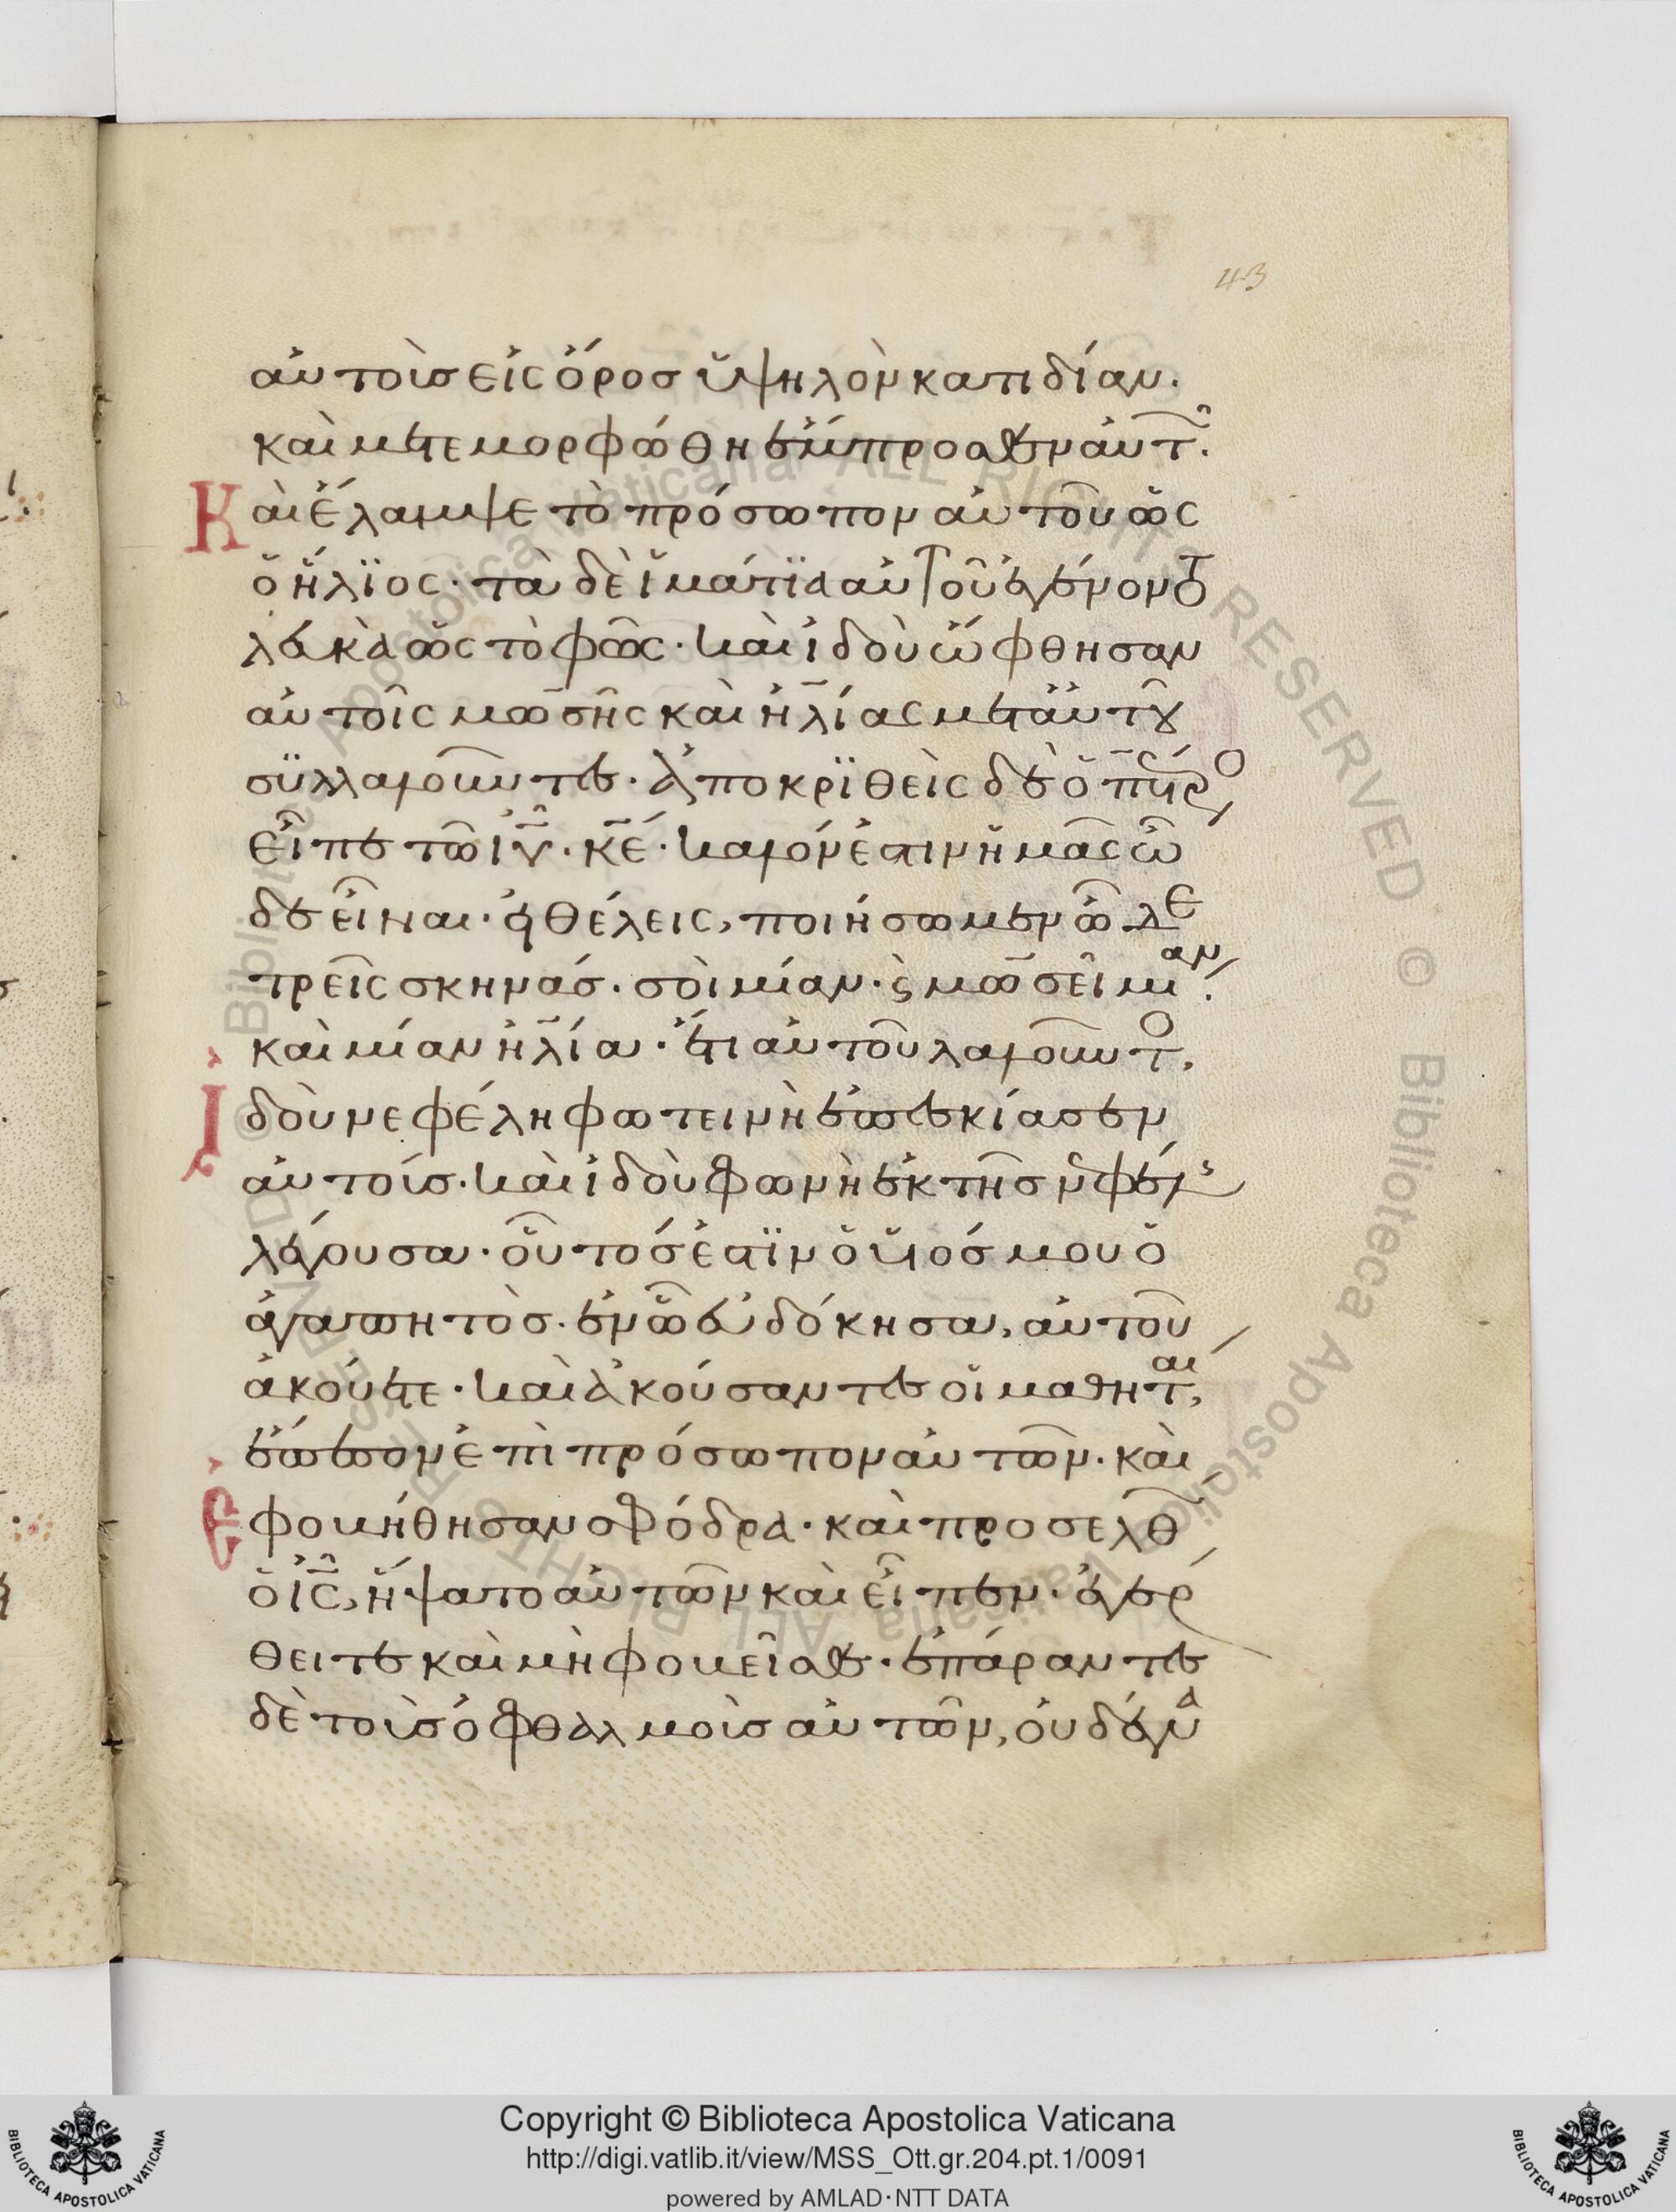 43
αὐτοὺσ εἰς ὄροσ ὑψηλὸν κατιδίαν.
καὶ μετεμορφώθη ἔμπροσθεν αὐτ.
Καὶ ἔλαμψε τὸ πρόσωπον αὐτοῦ ὡς
ὁ ἥλϊος· τὰ δὲ ἱμάτϊα αὐτοῦ ἐγένοντο
λευκὰ ὡς τὸ φῶς· καὶ ἰδοὺ ὤφθησαν
αὐτοῖς μωσῆς καὶ ἠλίας μετ αὐτοῦ
συλλαλοῦντες· ἀποκρϊθεὶς δὲ ὁ πέτρο
εἶπε τῶ ἰῦ· κέ· καλόν ἐστιν ἡμᾶς ὧ
δε εἶναι· εἰ θέλεις, ποιήσωμεν ὧδε
τρεῖς σκηνάσ· σοὶ μίαν· ϛ μωσεῖ μίαν.
καὶ μίαν ἠλία· ἔτι αὐτοῦ λαλοῦντο,
Ἰδοὺ νεφέλη φωτεινὴ ἐπεσκίασεν
αὐτούσ· καὶ ἰδοὺ φωνὴ ἐκ τῆσ νεφέλ
λέγουσα· οὗτόσ ἐστϊν ὁ υἱόσ μου ὁ
ἀγαπητὸσ· ἐν ὧ εὐδόκησα, αὐτοῦ
ἀκούετε· καὶ ἀκούσαντες οἱ μαθηταὶ,
ἔπεσον ἐπὶ πρόσωπον αὐτῶν· καὶ
Ἐφοβήθησαν σφόδρα· καὶ προσελθ
ὁ ἰς, ἥψατο αὐτῶν καὶ εἶπεν· ἐγέρ
θειτε καὶ μὴ φοβεῖσθε· ἐπάραντες
δὲ τοὺσ ὀφθαλμοὺσ αὐτῶν, οὐδένα
© Biblioteca Apostolica Vaticana ALL RIGHTS RESERVED
Copyright © Biblioteca Apostolica Vaticana
http://digi.vatlib.it/view/MSS_Ott.gr.204.pt.1/0091
powered by AMLAD·NTT DATA
BIBLIOTECA APOSTOLICA VATICANA
BIBLIOTECA APOSTOLICA VATICANA